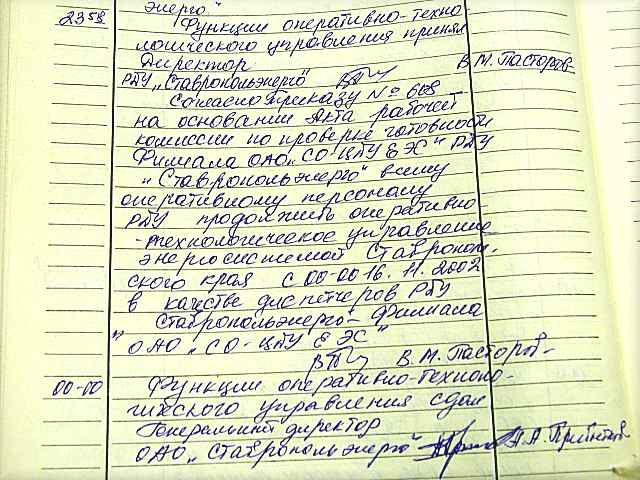 энерго"
23 58 Функции оперативно-техно
логического управления принял
Директор В.М. Пасторов
РДУ „Ставропольэнерго"
Согласно Приказу № 608
на основании Акта рабочей
комиссии по проверке готовности
Филиала ОАО „СО-ЦДУ ЕЭС" РДУ
„Ставропольэнерго" всему
оперативному персоналу
РДУ продолжить оперативно-
-технологическое управление
энергосистемой Ставрополь-
ского края с 00-00 16.11.2002
в качестве диспетчеров РДУ
Ставропольэнерго- Филиала
" ОАО „СО-ЦДУ ЕЭС"
В.М. Пасторов-
00-00 Функции оперативно-техноло-
гического управления сдал
Генеральный директор
ОАО „Ставропольэнерго"